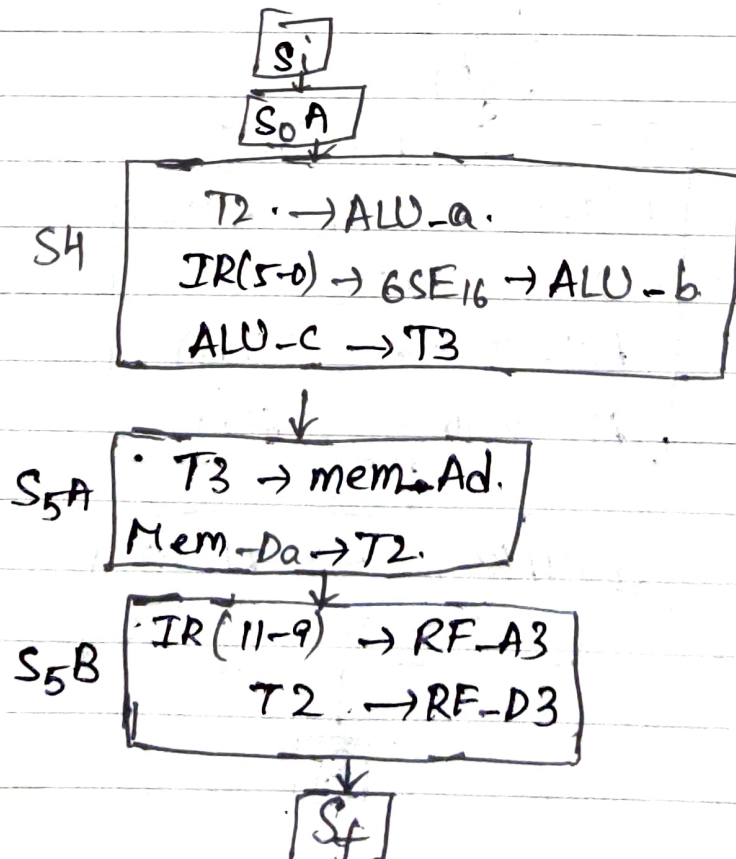 Si
S0A
S4
T2 . → ALU_a.
IR(5-0) → 6SE16 → ALU_b
ALU_C → T3
S5A
T3 → mem_Ad.
Mem_Da → T2.
S5B
IR(11-9) → RF_A3
T2 → RF_D3
Sf